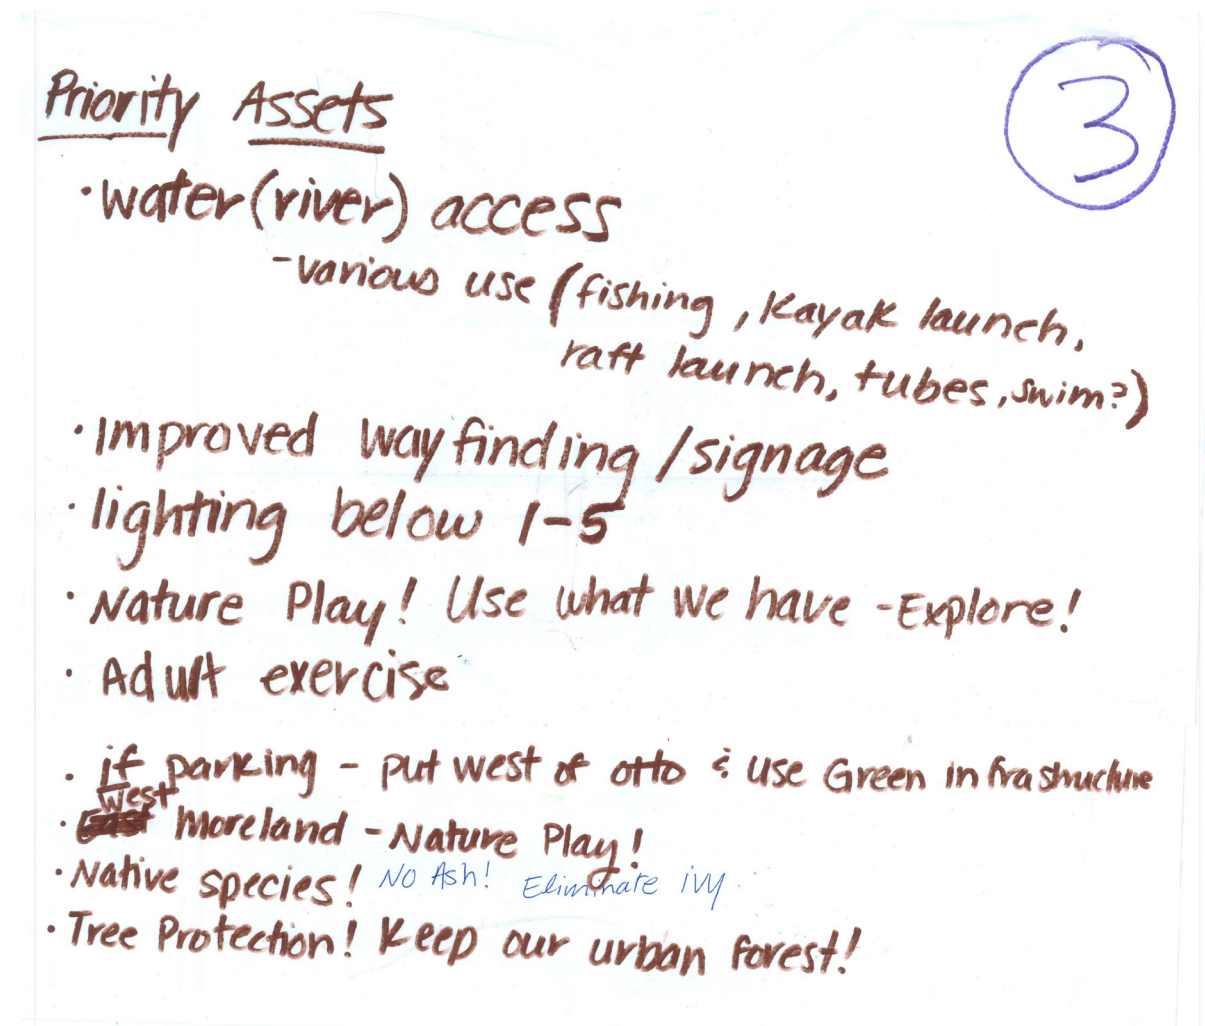 Priority Assets
3
· water (river) access
- various use (fishing, Kayak launch,
raft launch, tubes, swim?)
· Improved wayfinding/signage
· lighting below I-5
· Nature Play! Use what we have - Explore!
· Adult exercise
· if parking - put west of otto & use Green infrastructure
West
· East Moreland - Nature Play!
· Native species! No Ash! Eliminate ivy.
· Tree Protection! Keep our urban forest!